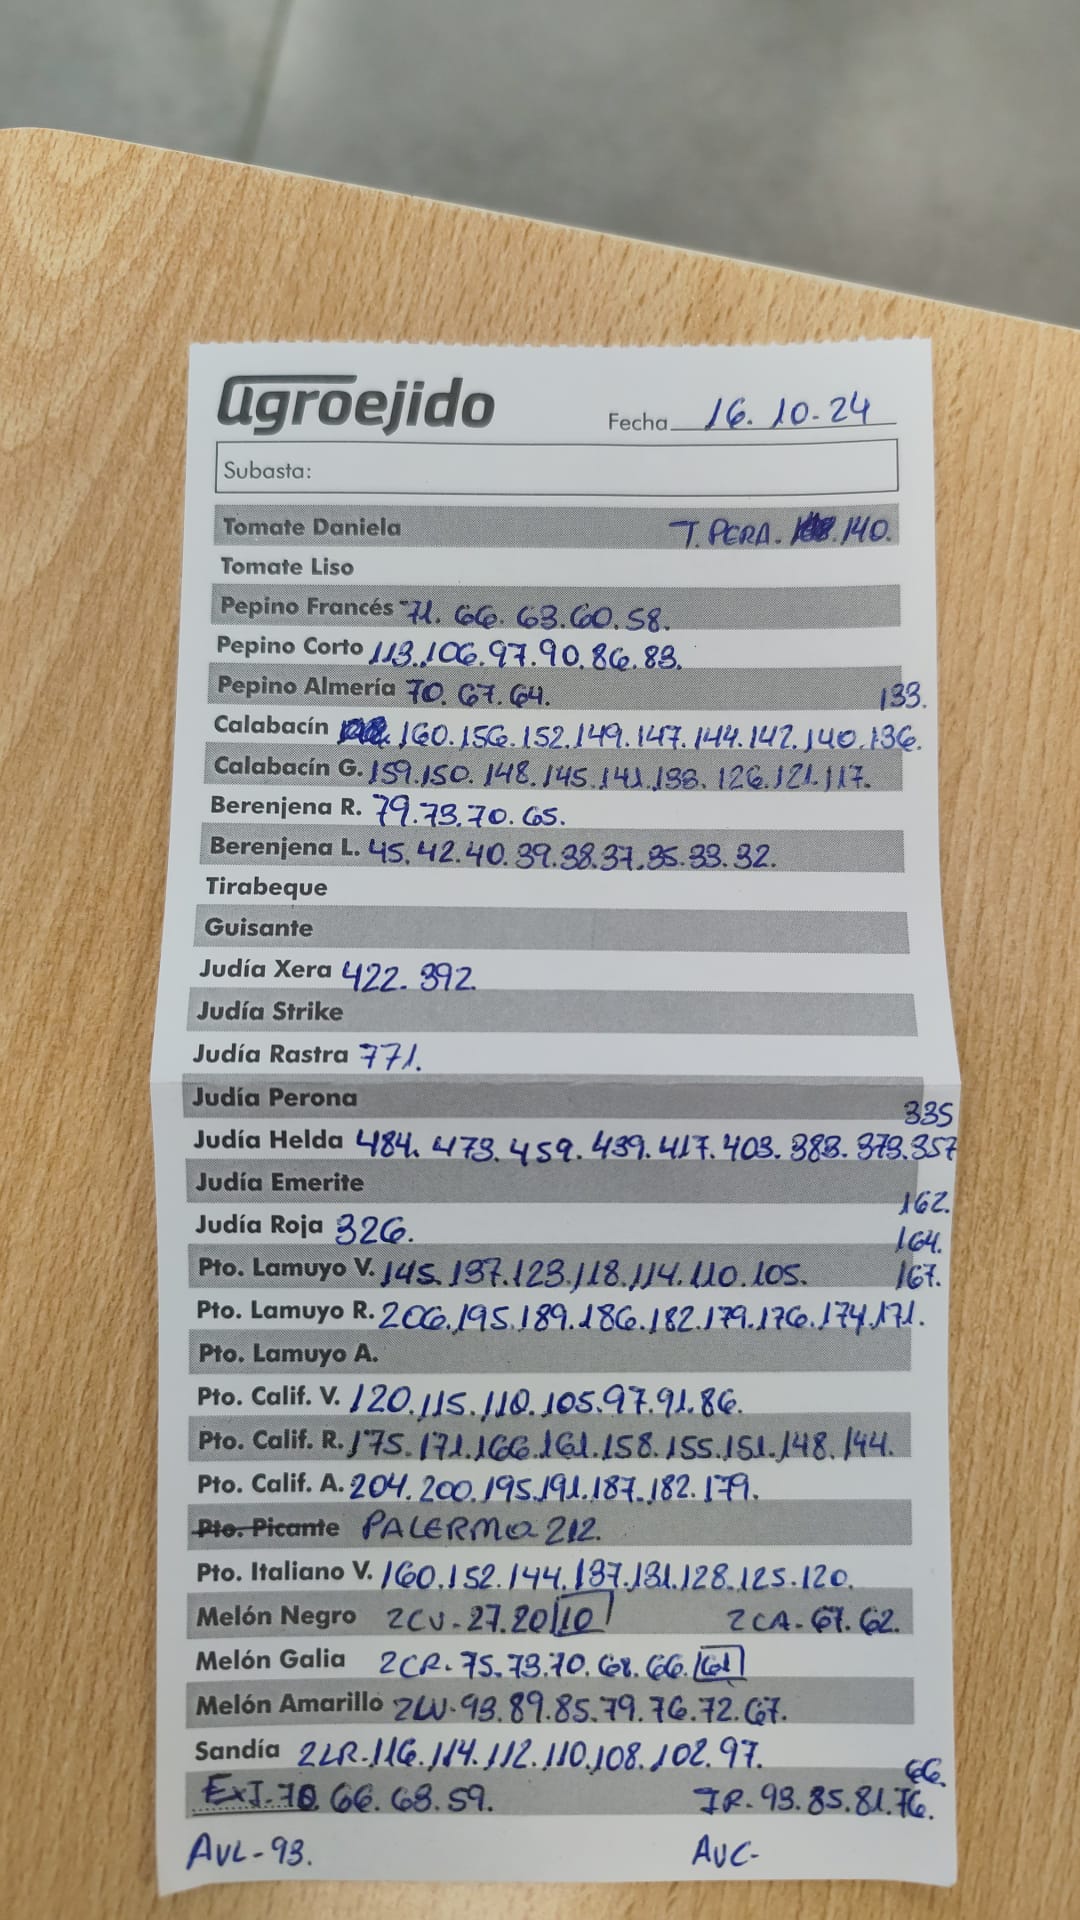 agroejido
Fecha 16.10-24
Subasta:
Tomate Daniela T. PERA. 140.
Tomate Liso
Pepino Francés 71. 66. 63. 60. 58.
Pepino Corto 113. 106. 97. 90. 86. 83.
Pepino Almería 70. 67. 64.
133.
Calabacín 160. 156. 152. 149. 147. 144. 142. 140. 136.
Calabacín G. 159. 150. 148. 145. 141. 133. 126. 121. 117.
Berenjena R. 79. 73. 70. 65.
Berenjena L. 45. 42. 40. 39. 38. 37. 35. 33. 32.
Tirabeque
Guisante
Judía Xera 422. 392.
Judía Strike
Judía Rastra 771.
Judía Perona
335
Judía Helda 484. 473. 459. 439. 417. 403. 383. 373. 357
Judía Emerite
162.
Judía Roja 326.
164.
Pto. Lamuyo V. 145. 137. 123. 118. 114. 110. 105.
167.
Pto. Lamuyo R. 206. 195. 189. 186. 182. 179. 176. 174. 171.
Pto. Lamuyo A.
Pto. Calif. V. 120. 115. 110. 105. 97. 91. 86.
Pto. Calif. R. 175. 171. 166. 161. 158. 155. 151. 148. 144.
Pto. Calif. A. 204. 200. 195. 191. 187. 182. 179.
Pto. Picante PALERMO 212.
Pto. Italiano V. 160. 152. 144. 137. 131. 128. 125. 120.
Melón Negro 2CV-27. 20 10 2CA-67. 62.
Melón Galia 2CR-75. 73. 70. 68. 66. 61
Melón Amarillo 2LV-93. 89. 85. 79. 76. 72. 67.
Sandía 2LR-116. 114. 112. 110. 108. 102. 97.
66.
EXT-70. 66. 63. 59. IR-93. 85. 81. 76.
AVL-93. AVC-